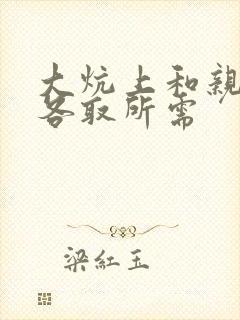 大炕上和親
各取所需
梁紅玉